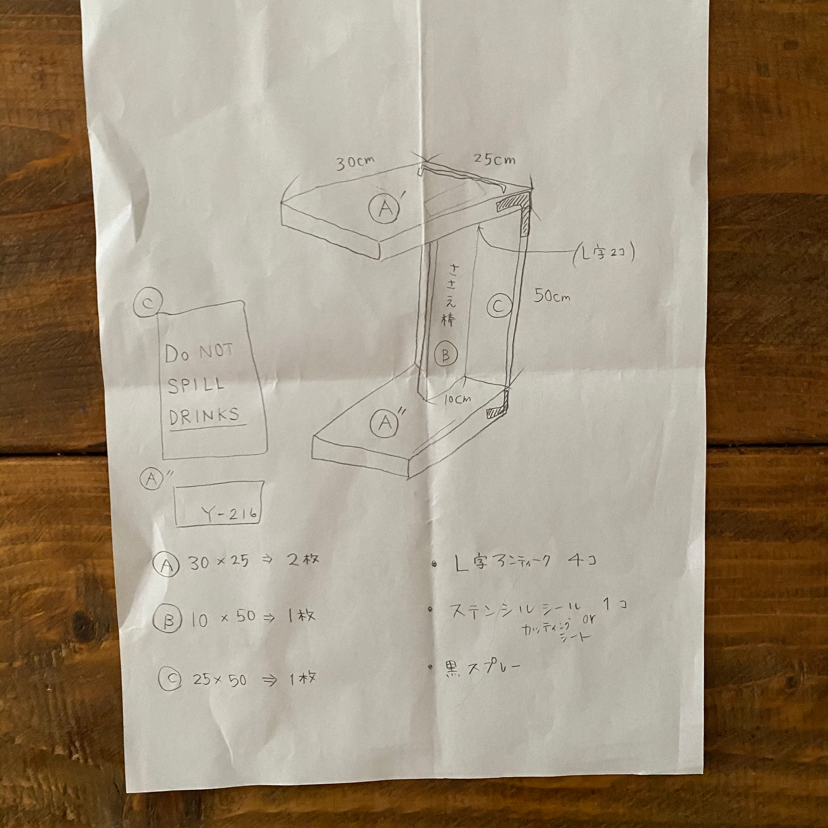 30cm
25cm
A'
(L字2コ)
ささえ棒
B
C
50cm
10cm
A"
C
Do NOT
SPILL
DRINKS
A"
Y-216
A 30×25⇒2枚
B 10×50⇒1枚
C 25×50⇒1枚
・L字アンティーク 4コ
・ステンシルシール 1コ
or
カッティング
シート
・黒スプレー